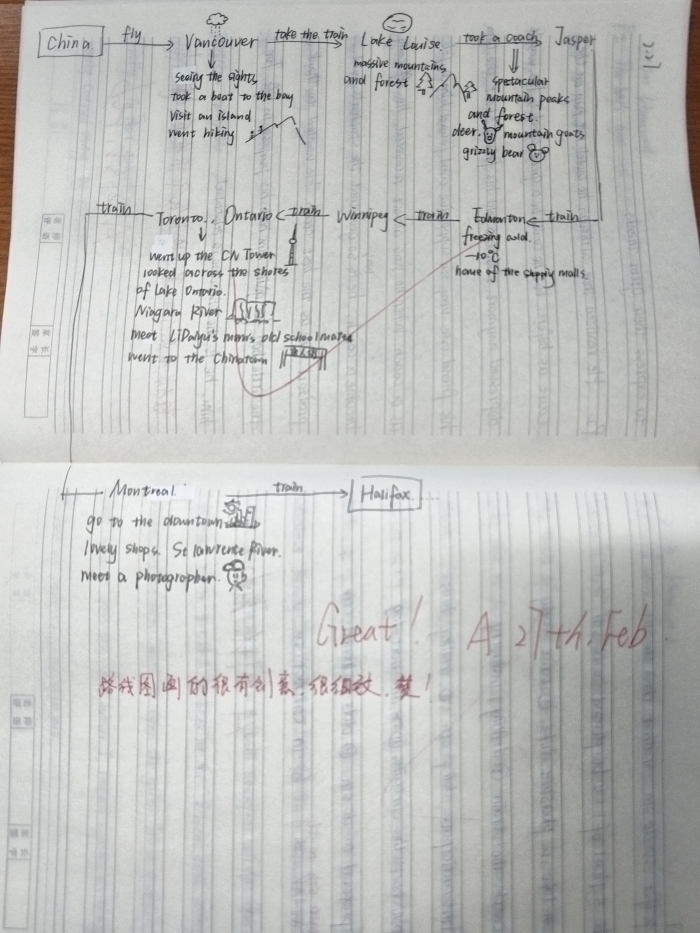 China fly Vancouver take the train Lake Louise took a coach Jasper
seeing the sights
took a boat to the bay
visit an island
went hiking
massive mountains
and forest
spetacular
mountain peaks
and forest
deer. mountain goats
grizzly bear
train Toronto. Ontario train Winnipeg train Edmonton train
freezing cold
-10°C
home of the supply malls
went up the CN Tower
looked across the shores
of Lake Ontario.
Niagara River
meet LiDaiyu's mum's old schoolmates
went to the Chinatown
Montreal. train Halifax.
go to the downtown
lovely shops. St lawrence River.
meet a photographer.
Great! A 27th. Feb
路线图画的很有创意，很细致，赞！